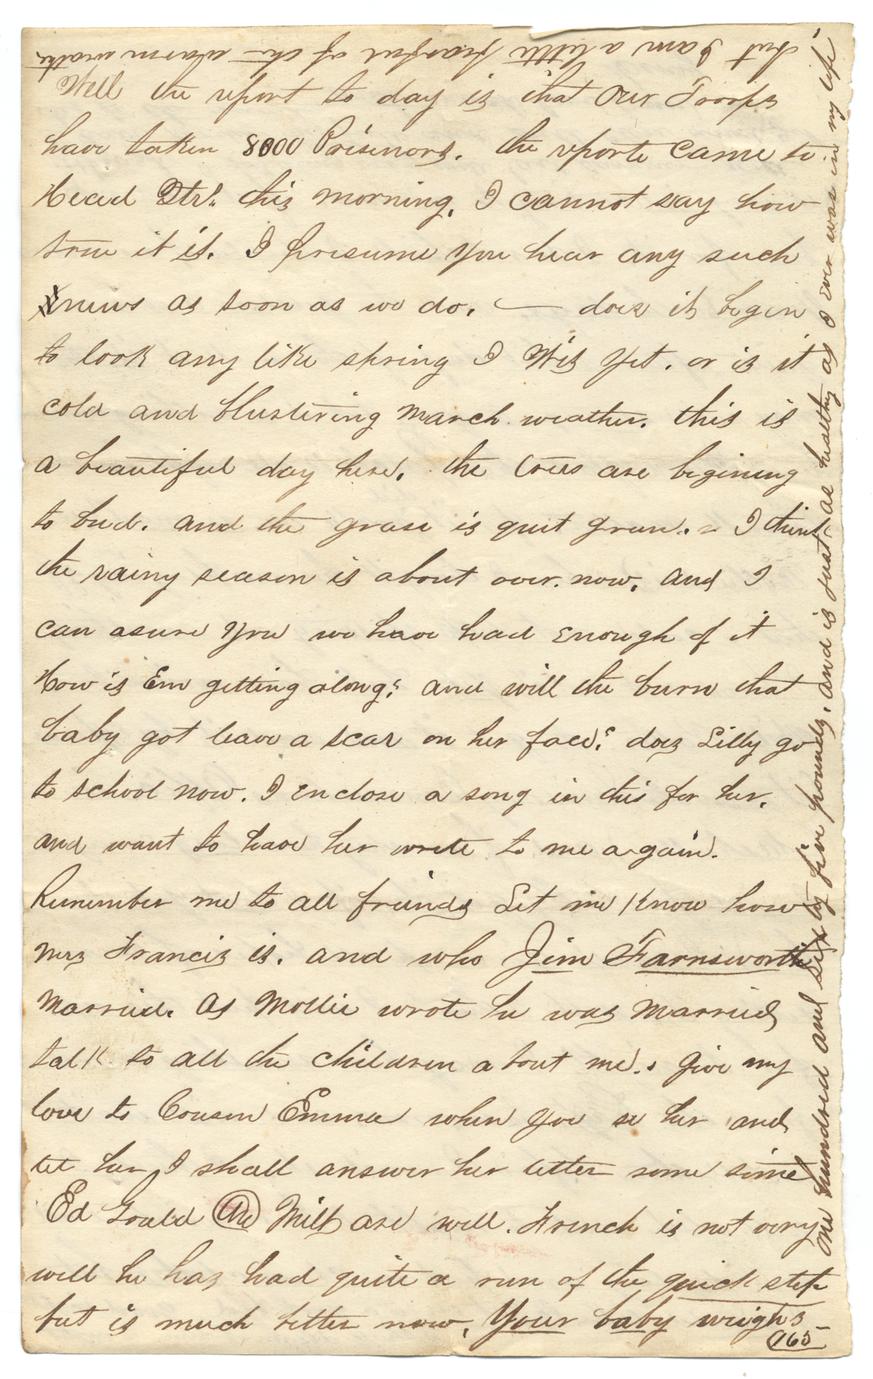 Well the report to day is that our Troops
have taken 8000 Prisenors. the reporte came to
Head Qtrs. this morning, I cannot say how
true it is. I presume you hear any such
news as soon as we do. — does it begin
to look any like spring I Wis yet. or is it
cold and blustering march weather. this is
a beautiful day here. the trees are begining
to bud. and the grase is quit green. = I think
the rainy season is about over now. and I
can asure you we have had enough of it
How is Em getting along? and will the burn that
baby got leave a scar on her face? does Lilly go
to school now. I enclose a song in this for her.
and want to have her wrote to me again.
Remember me to all friends Let me know how
Mrs Francis is. and who Jim Farnsworth
Married. As Mollie wrote he was Married
talk to all the children about me. give my
love to Cousen Emma when you se her and
tel her I shall answer her letter some time
Ed Gould the Milt are well. French is not very
well he has had quite a run of the quick step
but is much better now, Your baby weighs
165-
one hundred and sixty five pounds, and is just as healthy as I ever was in my life
but I am a little fearful of the warm weather